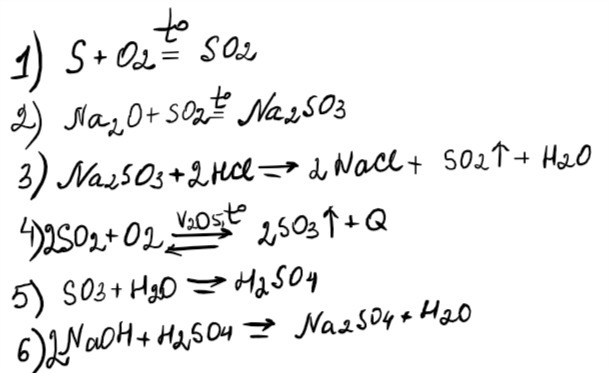 1) S + O2 t° = SO2
2) Na2O + SO2 t° = Na2SO3
3) Na2SO3 + 2HCl → 2NaCl + SO2↑ + H2O
4) 2SO2 + O2 V2O5, t° ⇄ 2SO3↑ + Q
5) SO3 + H2O → H2SO4
6) 2NaOH + H2SO4 → Na2SO4 + H2O